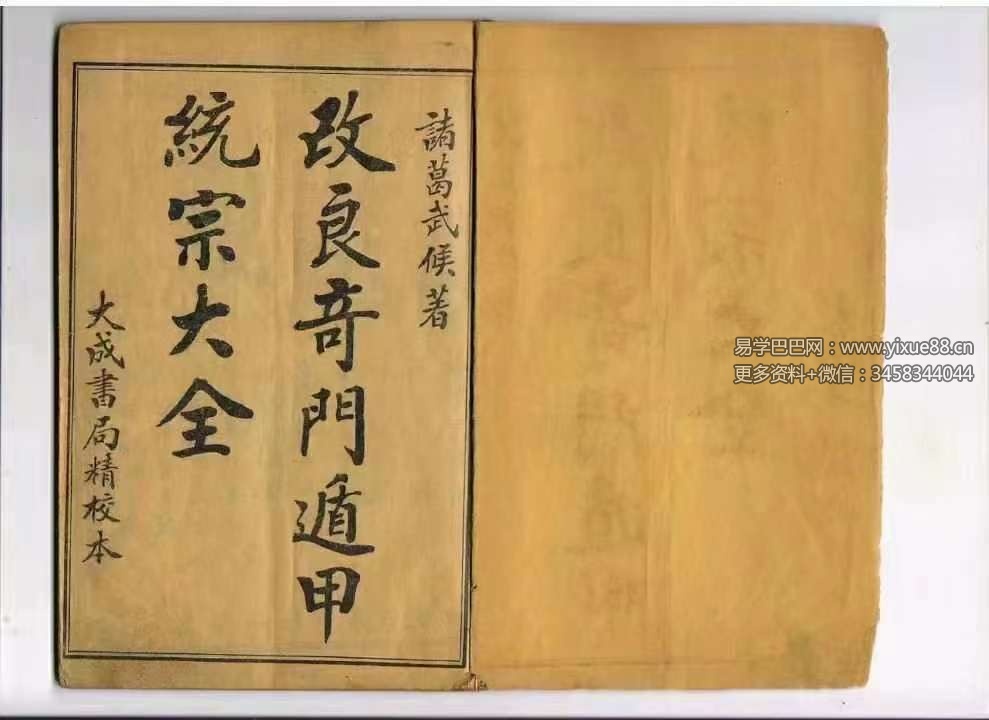 諸葛武侯著
改良奇門遁甲
統宗大全
大成書局精校本
易学巴巴网：www.yixue88.cn
更多资料+微信：3458344044